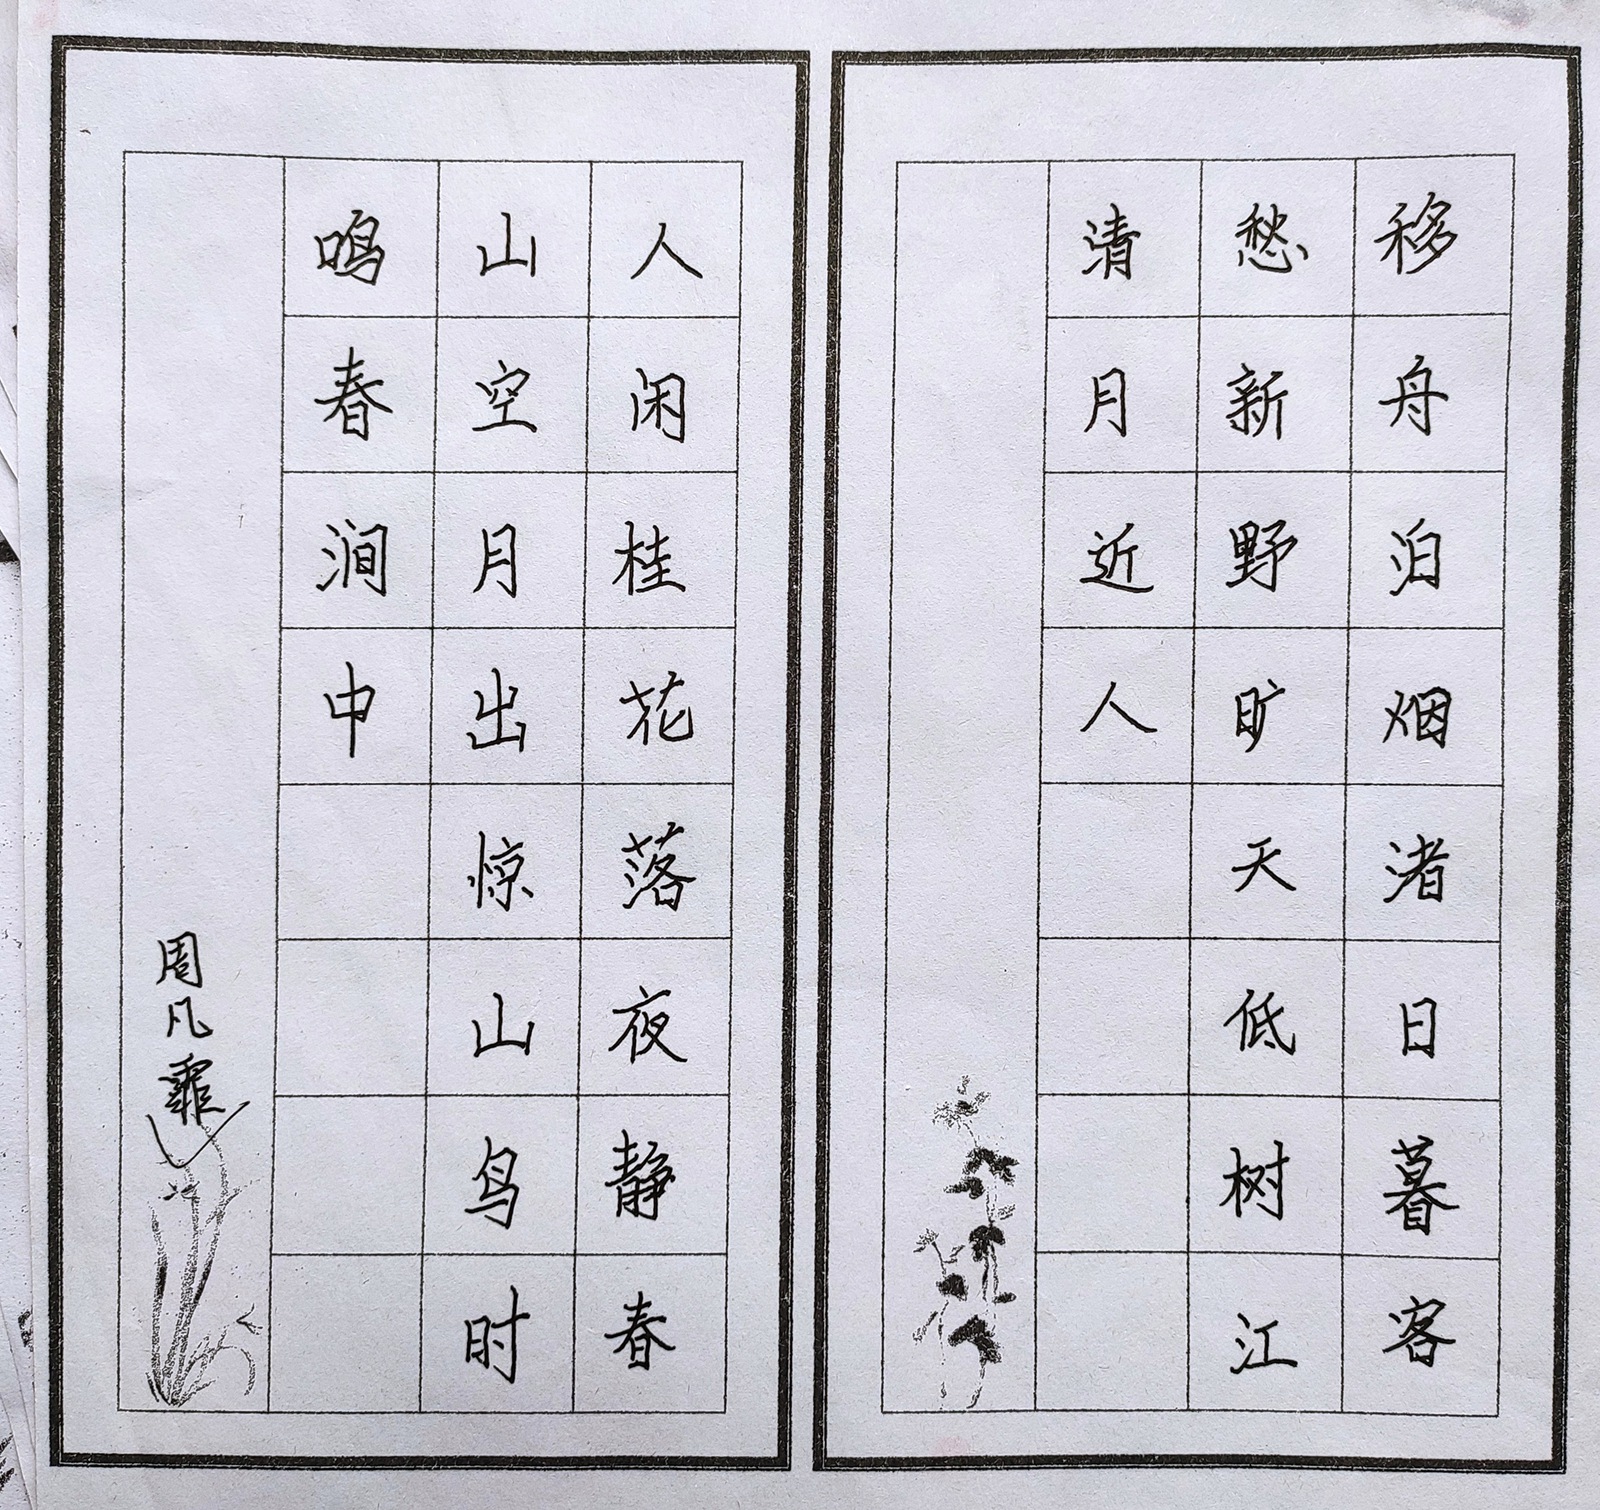 移舟泊烟渚日暮客
愁新野旷天低树江
清月近人
人闲桂花落夜静春
山空月出惊山鸟时
鸣春涧中
周凡霏